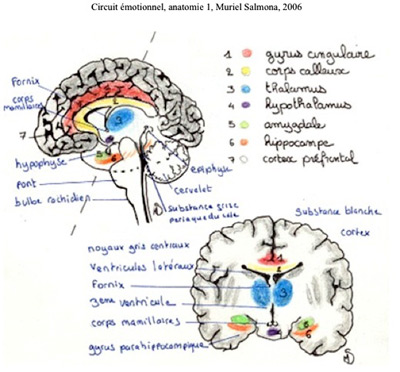 Circuit émotionnel, anatomie 1, Muriel Salmona, 2006
1 gyrus cingulaire
2 corps calleux
3 thalamus
4 hypothalamus
5 amygdale
6 hippocampe
7 cortex préfrontal
Fornix
corps
mamillaires
1
2
3
7
hypophyse
pont
bulbe rachidien
épiphyse
cervelet
Substance grise
periaqueducale
Substance blanche
cortex
noyaux gris centraux
Ventricules latéraux
Fornix
3ème ventricule
corps mamillaires
gyrus parahippocampique
1
2
3
3
4
5
6